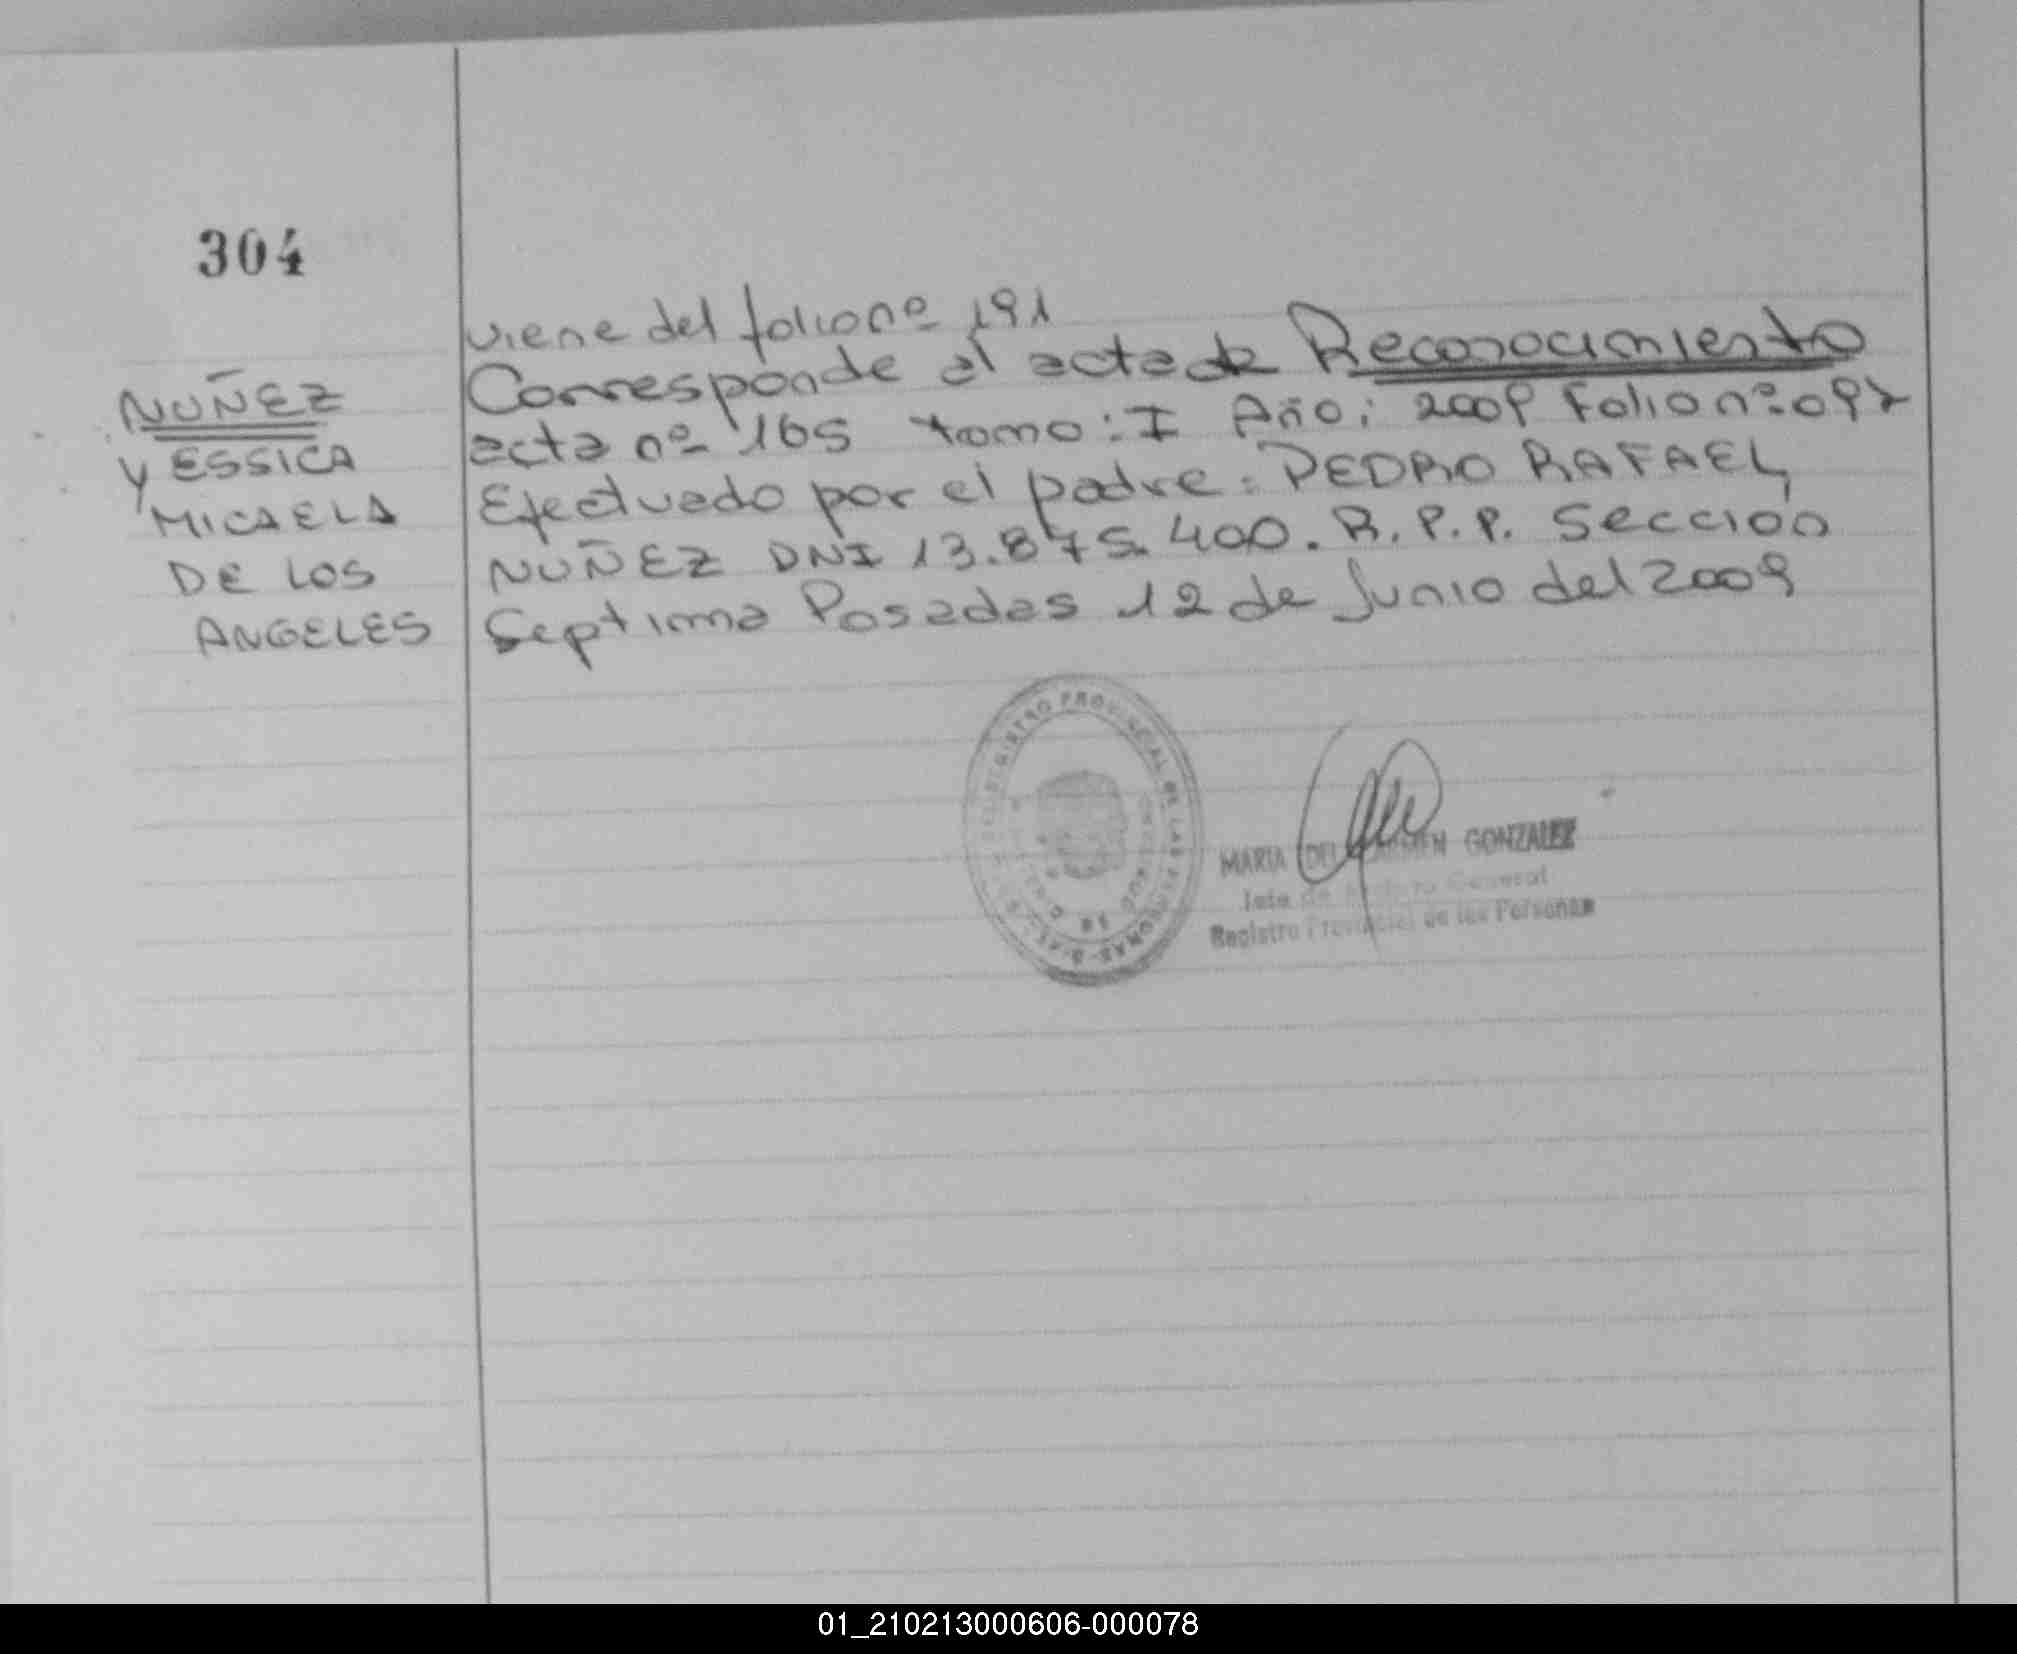 304
NUÑEZ
YESSICA
MICAELA
DE LOS
ANGELES
viene del folio nº 191
Corresponde al acta de Reconocimiento
acta nº 165 tomo: I Año: 2009 Folio nº 097
Efectuado por el padre: PEDRO RAFAEL
NUÑEZ DNI 13.875.400. R.P.P. Sección
Septima Posadas 12 de Junio del 2009
REGISTRO PROVINCIAL DE LAS PERSONAS
MARIA DEL CARMEN GONZALEZ
General
Registro Provincial de las Personas
01_210213000606-000078